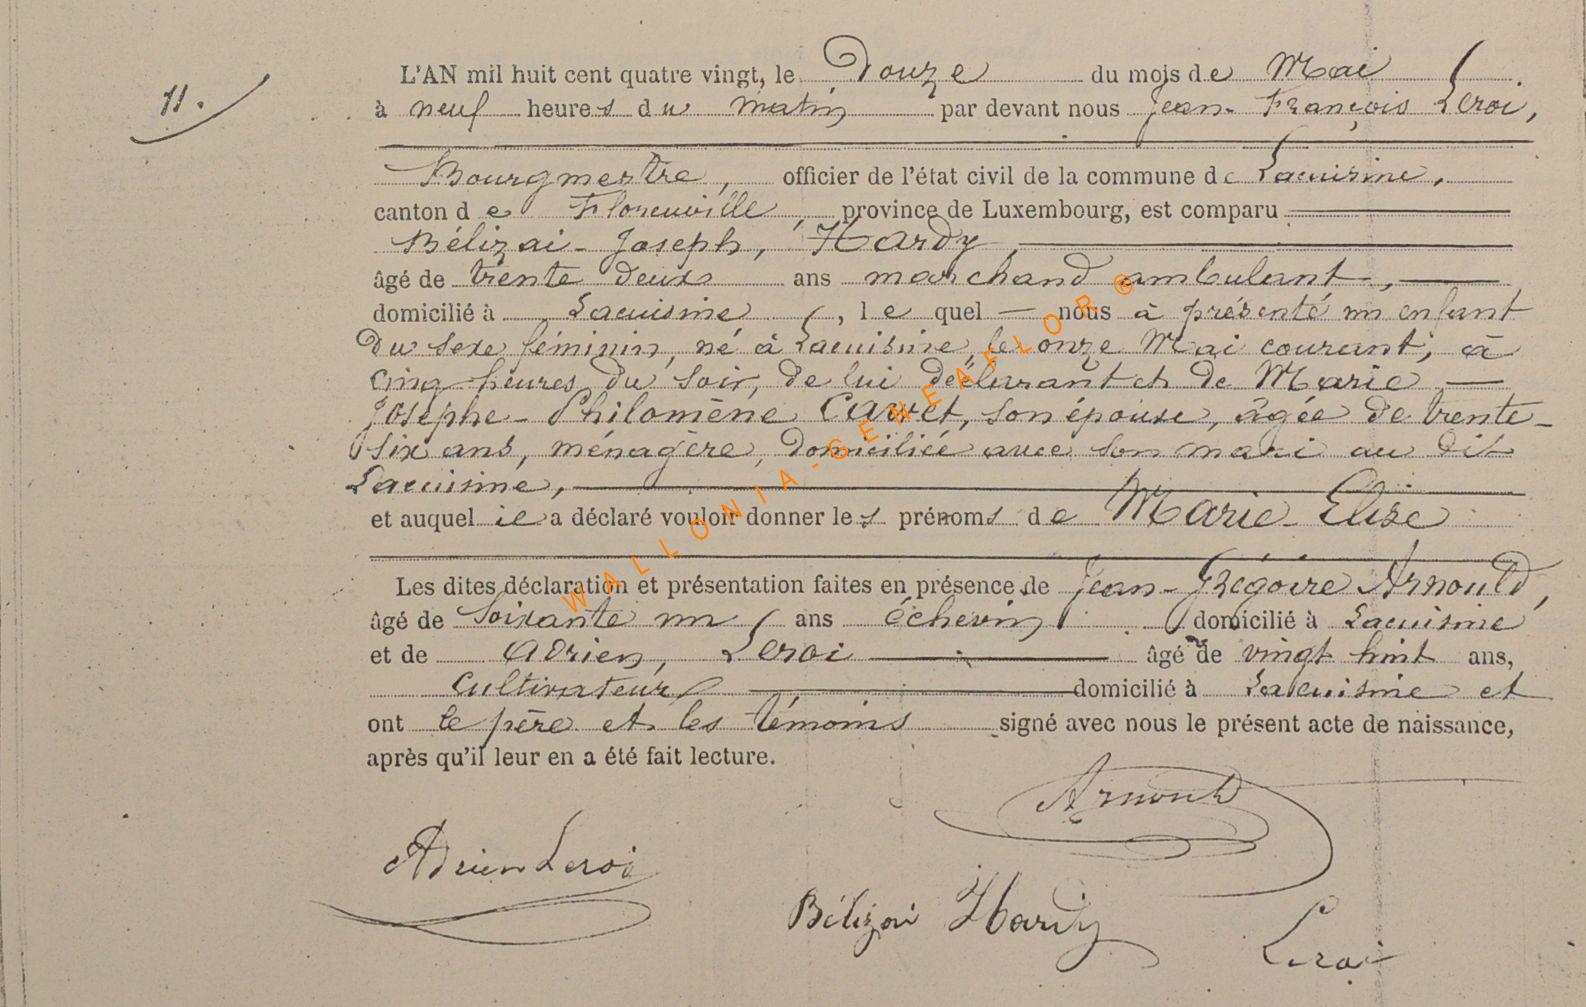 11.
L'AN mil huit cent quatre vingt, le Douze du mois de Mai
à neuf heures du matin par devant nous Jean-François Leroi,
Bourgmestre, officier de l'état civil de la commune de Lacuisine,
canton de Florenville, province de Luxembourg, est comparu
Bélizai-Joseph, Hardy
âgé de trente deux ans marchand ambulant,
domicilié à Lacuisine, le quel nous à présenté un enfant
Du sexe féminin, né à Lacuisine, le onze Mai courant, à
cinq heures du soir, de lui déclarant et de Marie
Josephe-Philomène Cawet, son épouse, âgée de trente-
six ans, ménagère, domiciliée avec son mari au dit
Lacuisine,
et auquel il a déclaré vouloir donner les prénoms de Marie-Elise
Les dites déclaration et présentation faites en présence de Jean-Grégoire Arnould,
âgé de soixante un ans échevin domicilié à Lacuisine
et de Adrien, Leroi âgé de vingt huit ans,
cultivateur domicilié à Lacuisine et
ont le père et les témoins signé avec nous le présent acte de naissance,
après qu'il leur en a été fait lecture.
Arnould
Adrien Leroi
Bélizai Hardy
Leroi
WALLONIA-GENEAFLOR®